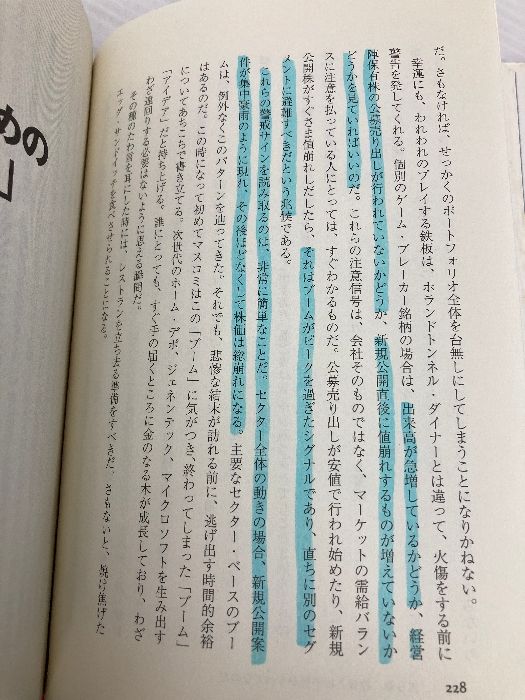 だ。さもなければ、せっかくのポートフォリオ全体を台無しにしてしまうことになりかねない。
幸運にも、われわれのプレイする鉄板は、ホランドトンネル・ダイナーとは違って、火傷をする前に
警告を発してくれる。個別のゲーム・ブレーカー銘柄の場合は、出来高が急増しているかどうか、経営
陣保有株の公募売り出しが行われていないかどうか、新規公開直後に値崩れするものが増えていないか
どうかを見ていればいいのだ。これらの注意信号は、会社そのものではなく、マーケットの需給バラン
スに注意を払っている人にとっては、すぐわかるものだ。公募売り出しが安値で行われ始めたり、新規
公開株がすぐさま値崩れしだしたら、それはブームがピークを過ぎたシグナルであり、直ちに別のセグ
メントに避難すべきだという兆候である。
これらの警戒サインを読み取るのは、非常に簡単なことだ。セクター全体の動きの場合、新規公開案
件が集中豪雨のように現れ、その後ほどなくして株価は総崩れになる。主要なセクター・ベースのブー
ムは、例外なくこのパターンを辿ってきた。それでも、悲惨な結末が訪れる前に、逃げ出す時間的余裕
はあるのだ。この時になって初めてマスコミはこの「ブーム」に気がつき、終わってしまった「ブーム」
についてあちこちで書き立てる。次世代のホーム・デポ、ジェネンテック、マイクロソフトを生み出す
「アイデア」だと持ち上げる。誰にとっても、すぐ手の届くところに金のなる木が成長しており、わざ
わざ遠回りする必要はないように思える瞬間だ。
その種のたわ言を耳にした時には、レストランを立ち去る準備をすべきだ。さもないと、焼け焦げた
エッグ・サンドイッチを食べさせられることになる。
228
めの
」